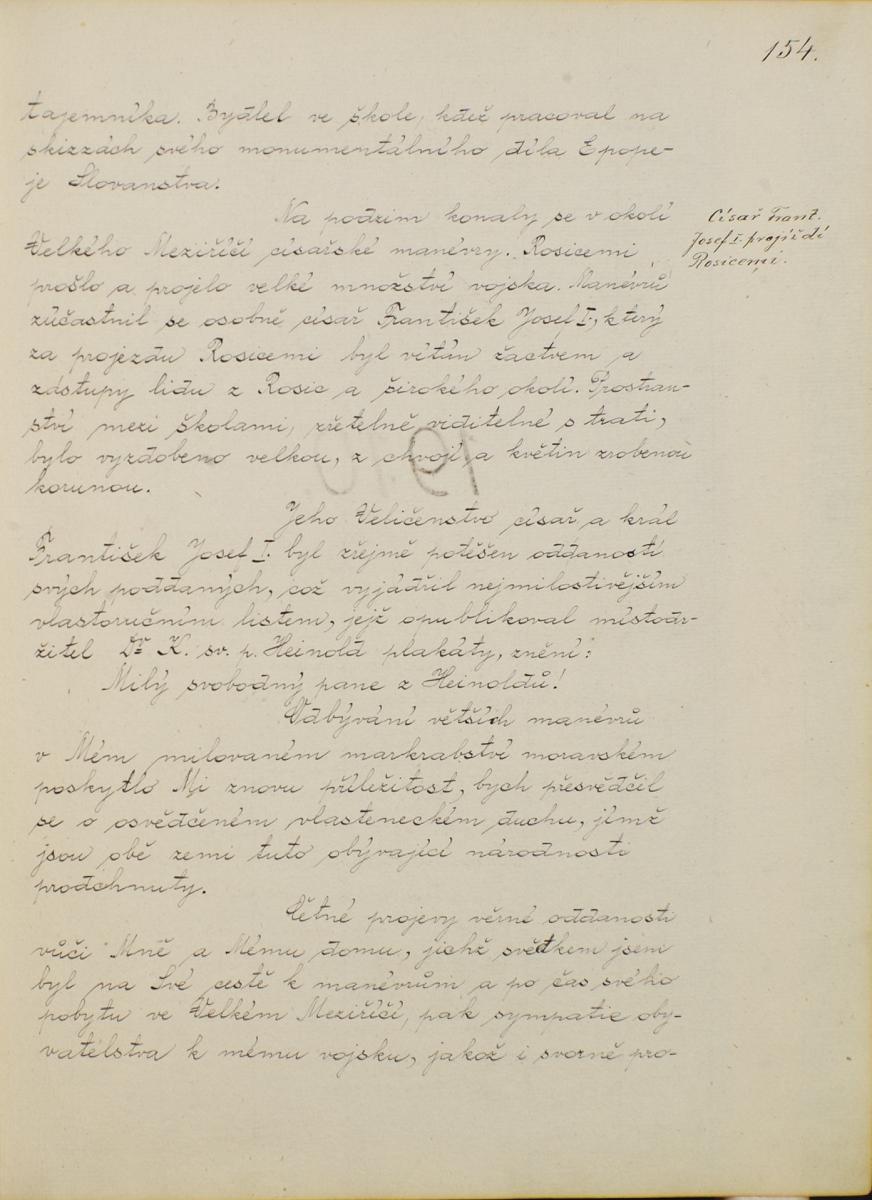 154.
tajemníka. Bydlel ve škole, kdež pracoval na
skizzách svého monumentálního díla Epope-
je Slovanstva.
Na podzim konaly se v okolí
Velkého Meziříčí císařské manévry. Rosicemi
prošlo a projelo velké množství vojska. Manévrů
zúčastnil se osobně císař František Josef I., který
za projezdu Rosicemi byl vítán žactvem a
zástupy lidu z Rosic a širokého okolí. Prostran-
ství mezi školami, zřetelně viditelné s trati,
bylo vyzdobeno velkou, z chvojí a květin zrobenou
korunou.
Císař Frant.
Josef I. projíždí
Rosicemi.
Jeho Veličenstvo císař a král
František Josef I. byl zřejmě potěšen oddaností
svých poddaných, což vyjádřil nejmilostivějším
vlastoručním listem, jejž opublikoval místodr-
žitel Dr K. sv. p. Heinold plakáty, znění:
Milý svobodný pane z Heinoldů!
Odbývání větších manévrů
v Mém milovaném markrabství moravském
poskytlo Mi znovu příležitost, bych přesvědčil
se o osvědčeném vlasteneckém duchu, jímž
jsou obě zemi tuto obývající národnosti
prodchnuty.
Četné projevy věrné oddanosti
vůči Mně a Mému domu, jichž svědkem jsem
byl na Své cestě k manévrům a po čas svého
pobytu ve Velkém Meziříčí, pak sympatie oby-
vatelstva k mému vojsku, jakož i svorné pro-